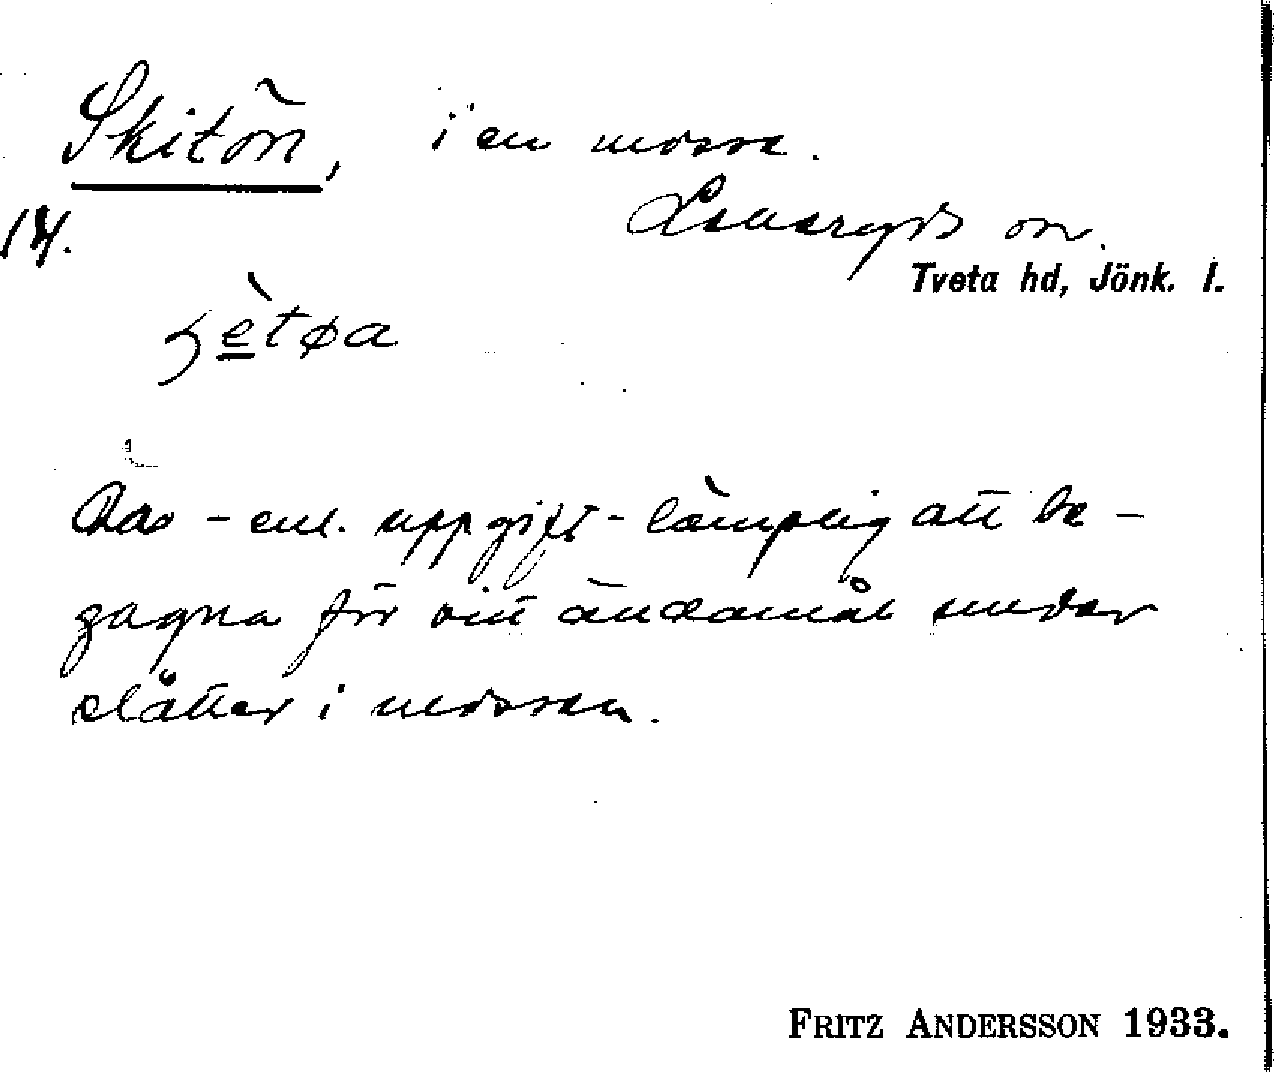 Skitön, i en mosse.
Lekeryds sn.
Tveta hd, Jönk. l.
14.
Das - enl. uppgift - lämplig att be-
gagna för vitt ändamål under
slåtter i mossen.
FRITZ ANDERSSON 1933.